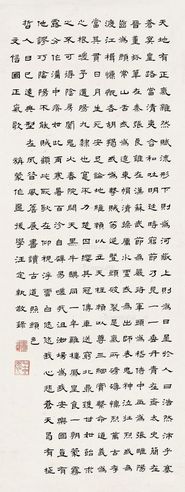 天地有正氣雜然賦流形下則爲河嶽上則爲日星於人曰浩然沛乎塞
蒼冥皇路當清夷含和吐明廷時窮節乃見一一垂丹青在齊太史簡在
晉董狐筆在秦張良椎在漢蘇武節爲嚴將軍頭爲嵇侍中血爲張睢陽
齒爲顏常山舌或爲遼東帽清操厲冰雪或爲出師表鬼神泣壯烈或爲
渡江楫慷慨吞胡羯或爲擊賊笏逆豎頭破裂是氣所磅礴凜烈萬古存
當其貫日月生死安足論地維賴以立天柱賴以尊三綱實係命道義爲
之根嗟予遘陽九隸也實不力楚囚纓其冠傳車送窮北鼎鑊甘如飴求
之不可得陰房闃鬼火春院閟天黑牛驥同一皁雞棲鳳凰食一朝蒙霧
露分作溝中瘠如此再寒暑百沴自辟易嗟哉沮洳場爲我安樂國豈有
他繆巧陰陽不能賊顧此耿耿在仰視浮雲白悠悠我心悲蒼天曷有極
哲人日已遠典型在夙昔風簷展書讀古道照顏色
文信國正氣歌 後學汪定執敬錄